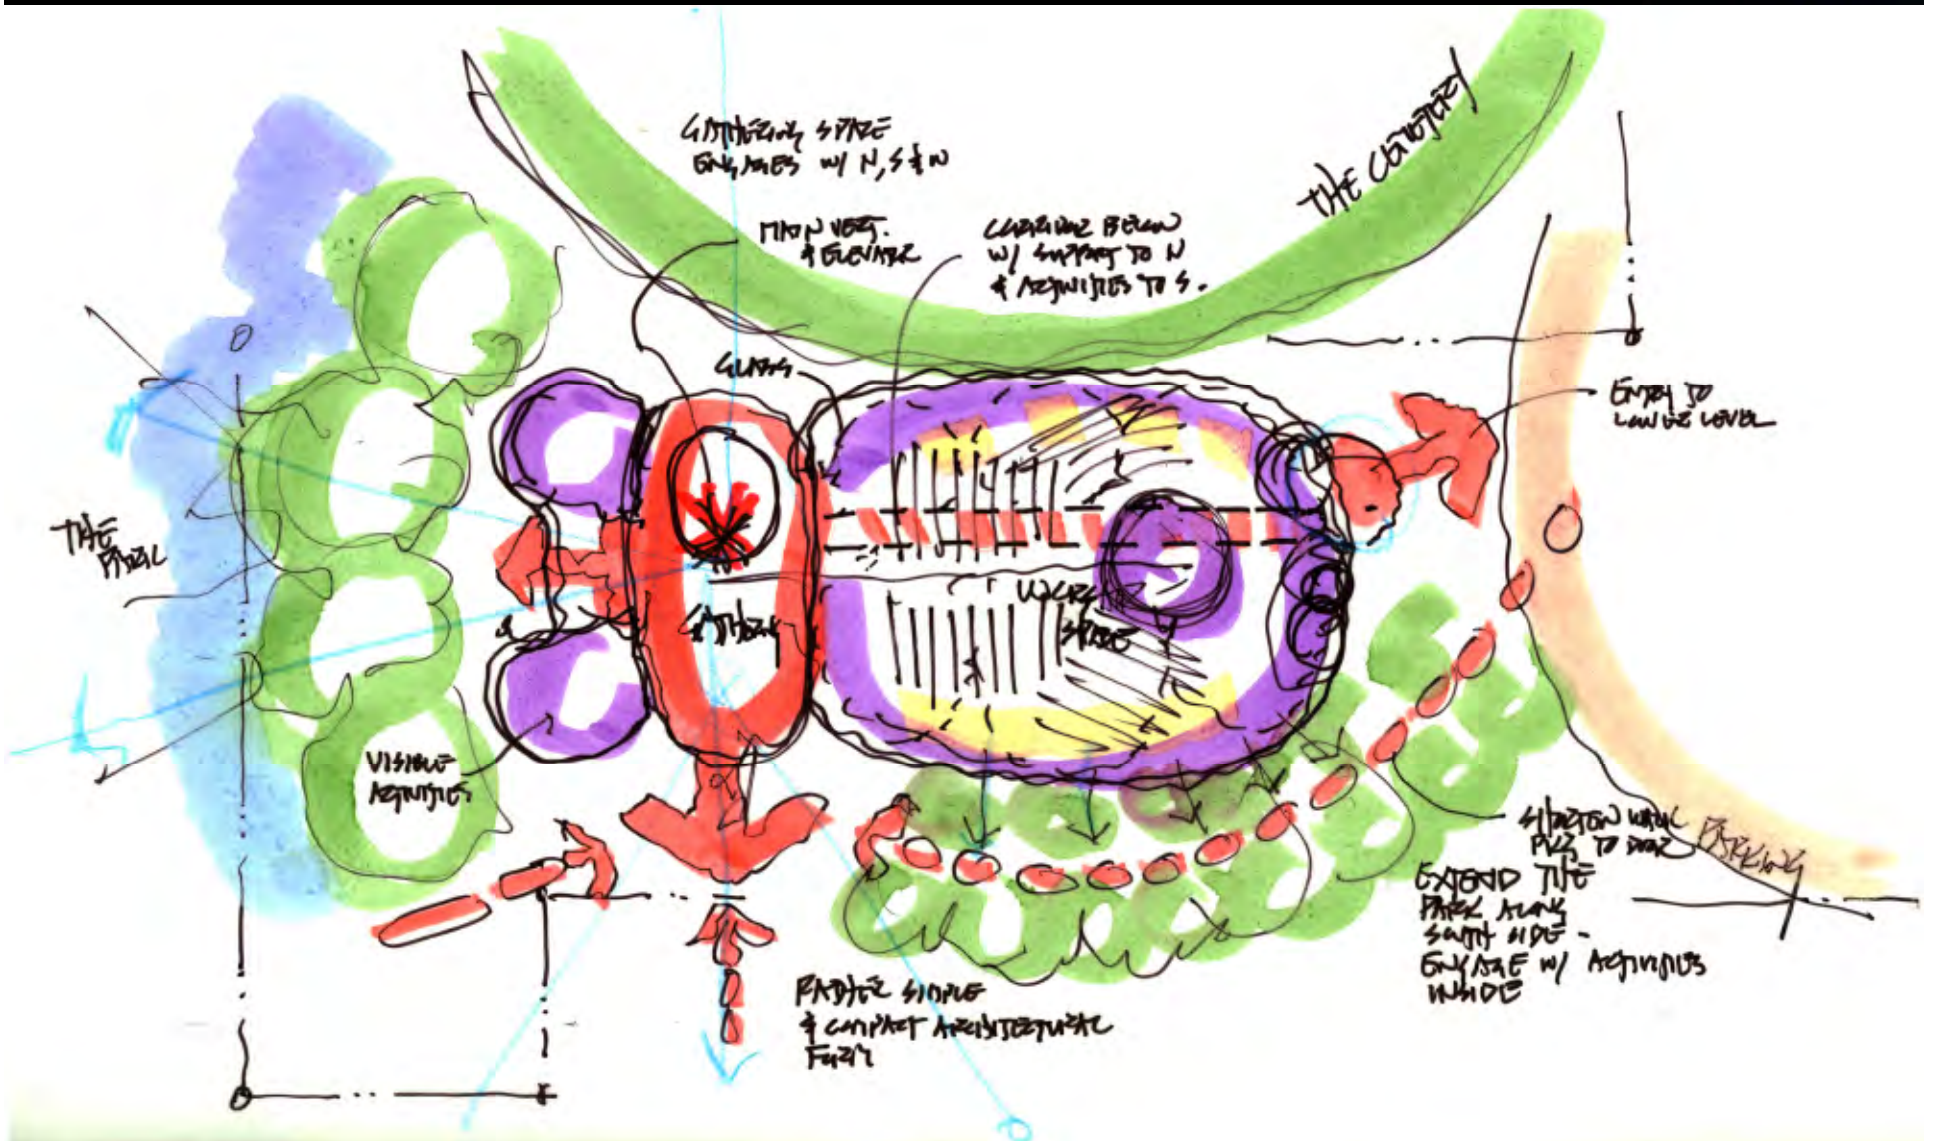 GATHERING SPACE
ENGAGES W/ N, S & W
THE CEMETERY
MAIN VERT.
& ELEVATOR
CORRIDOR BELOW
W/ SUPPORT TO N
& ACTIVITIES TO S.
GLASS
ENTRY TO
LOWER LEVEL
THE
PARK
GATHERING
WORK
SPACE
VISIBLE
ACTIVITIES
SHELTERED WALK
PKG TO DOOR
PARKING
EXTEND THE
PARK ALONG
SOUTH SIDE -
ENGAGE W/ ACTIVITIES
INSIDE
RATHER SIMPLE
& COMPACT ARCHITECTURAL
FORM